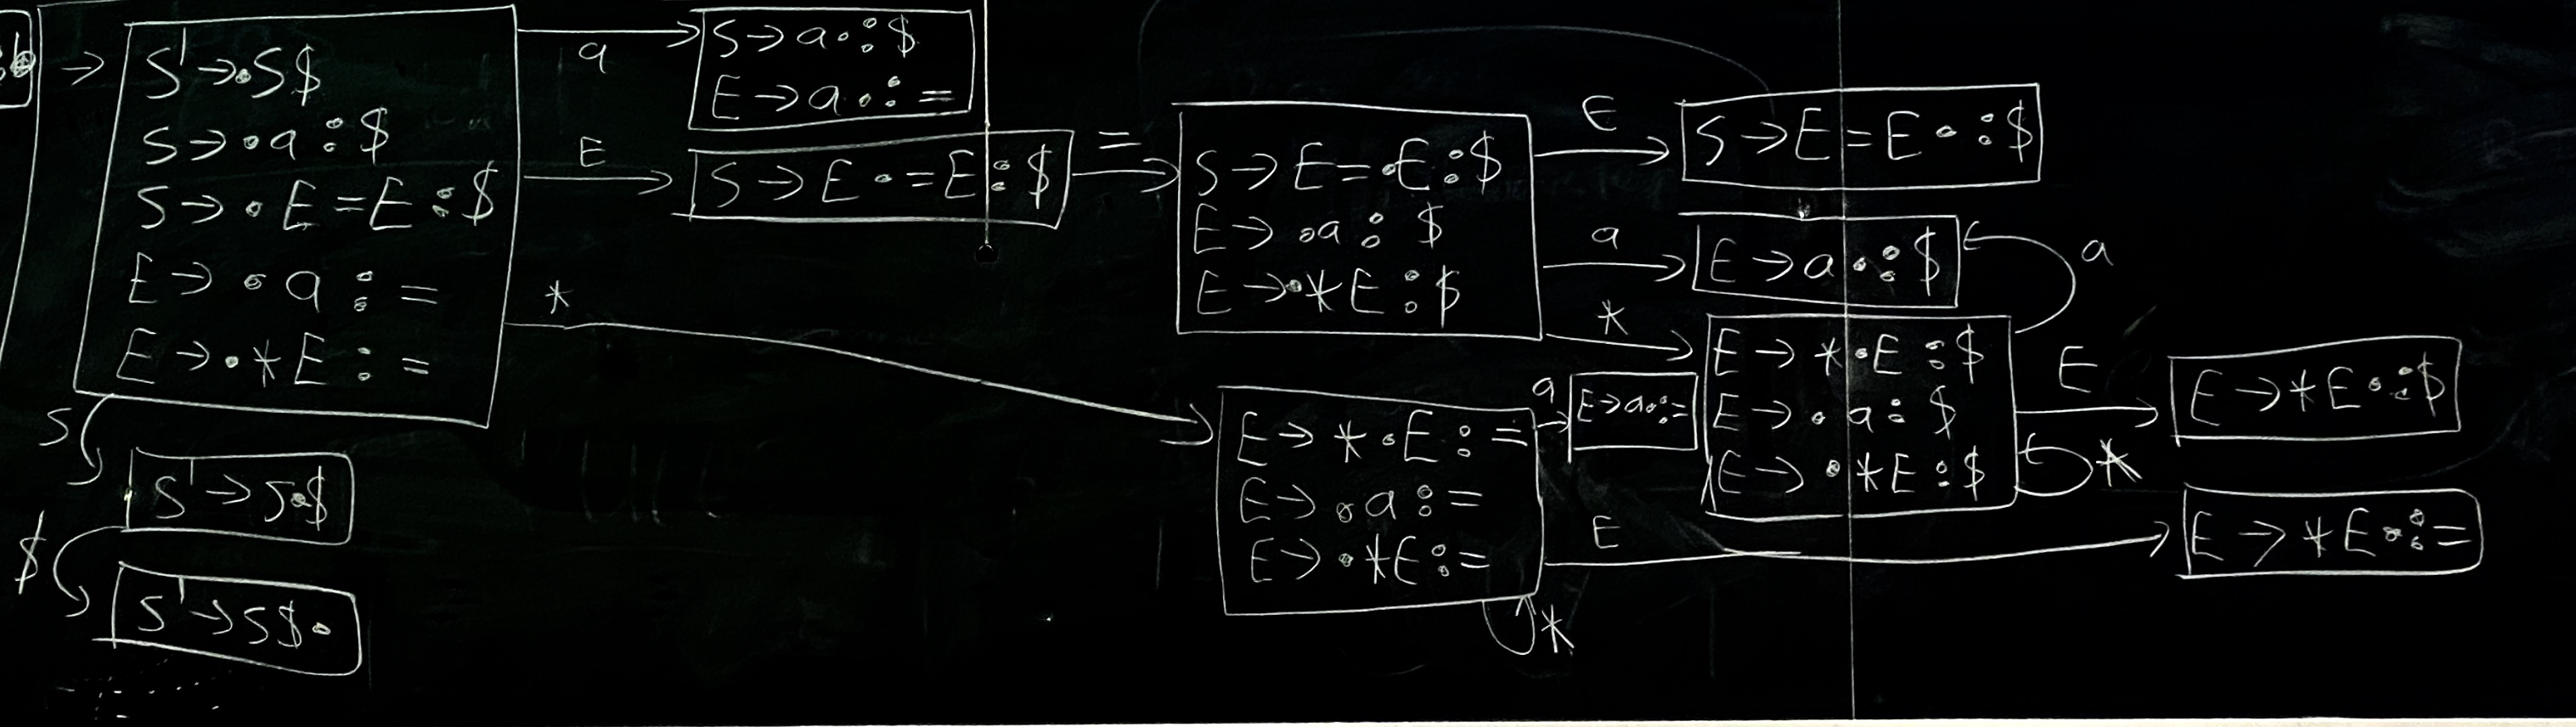 → S' → •S$
S → •a : $
S → •E=E : $
E → •a : =
E → •*E : =
a
S → a• : $
E → a• : =
E
S → E•=E : $
=
S → E=•E : $
E → •a : $
E → •*E : $
E
S → E=E• : $
a
E → a• : $
a
*
E → *•E : $
E → •a : $
E → •*E : $
E
E → *E• : $
*
*
E → *•E : =
E → •a : =
E → •*E : =
a
E → a• : =
E
E → *E• : =
*
S
S' → S•$
$
S' → S$•